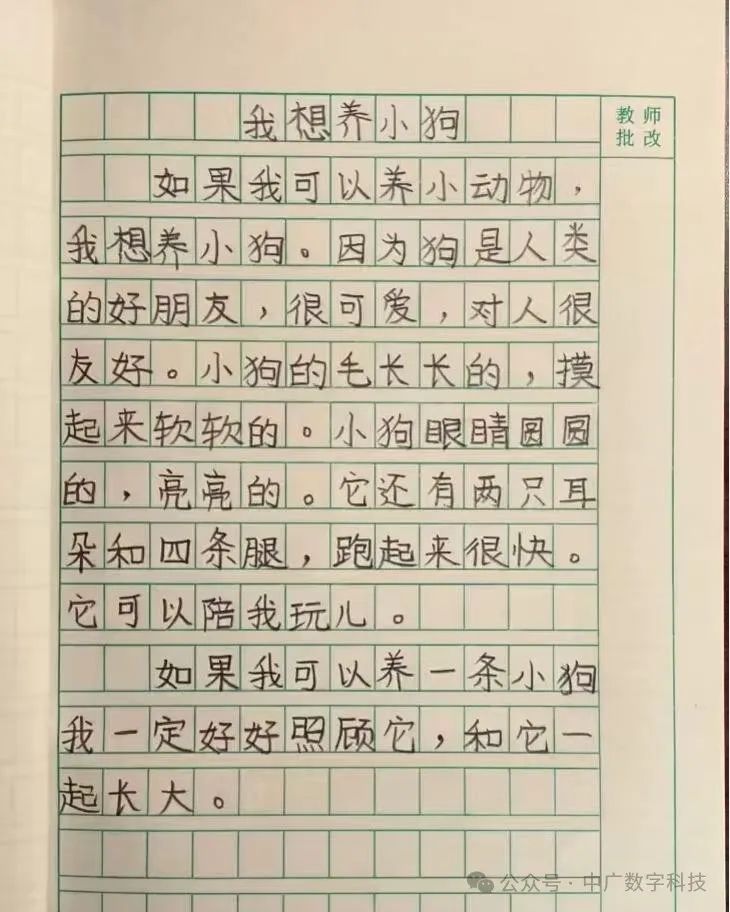 我想养小狗
教师
批改
如果我可以养小动物，
我想养小狗。因为狗是人类
的好朋友，很可爱，对人很
友好。小狗的毛长长的，摸
起来软软的。小狗眼睛圆圆
的，亮亮的。它还有两只耳
朵和四条腿，跑起来很快。
它可以陪我玩儿。
如果我可以养一条小狗
我一定好好照顾它，和它一
起长大。
公众号·中广数字科技